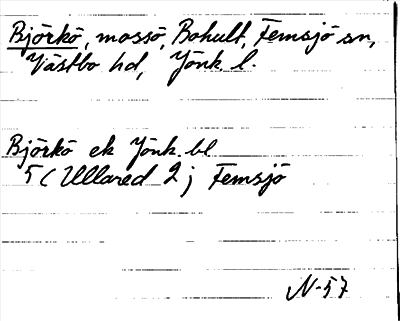 Björkö, mossö, Bohult, Femsjö sn,
Västbo hd, Jönk. l.
Björkö ek Jönk. bl
5 ( Ullared 2 ; Femsjö
N-57